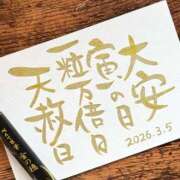 大安
寅の日
一粒万倍日
天赦日
2026.3.5